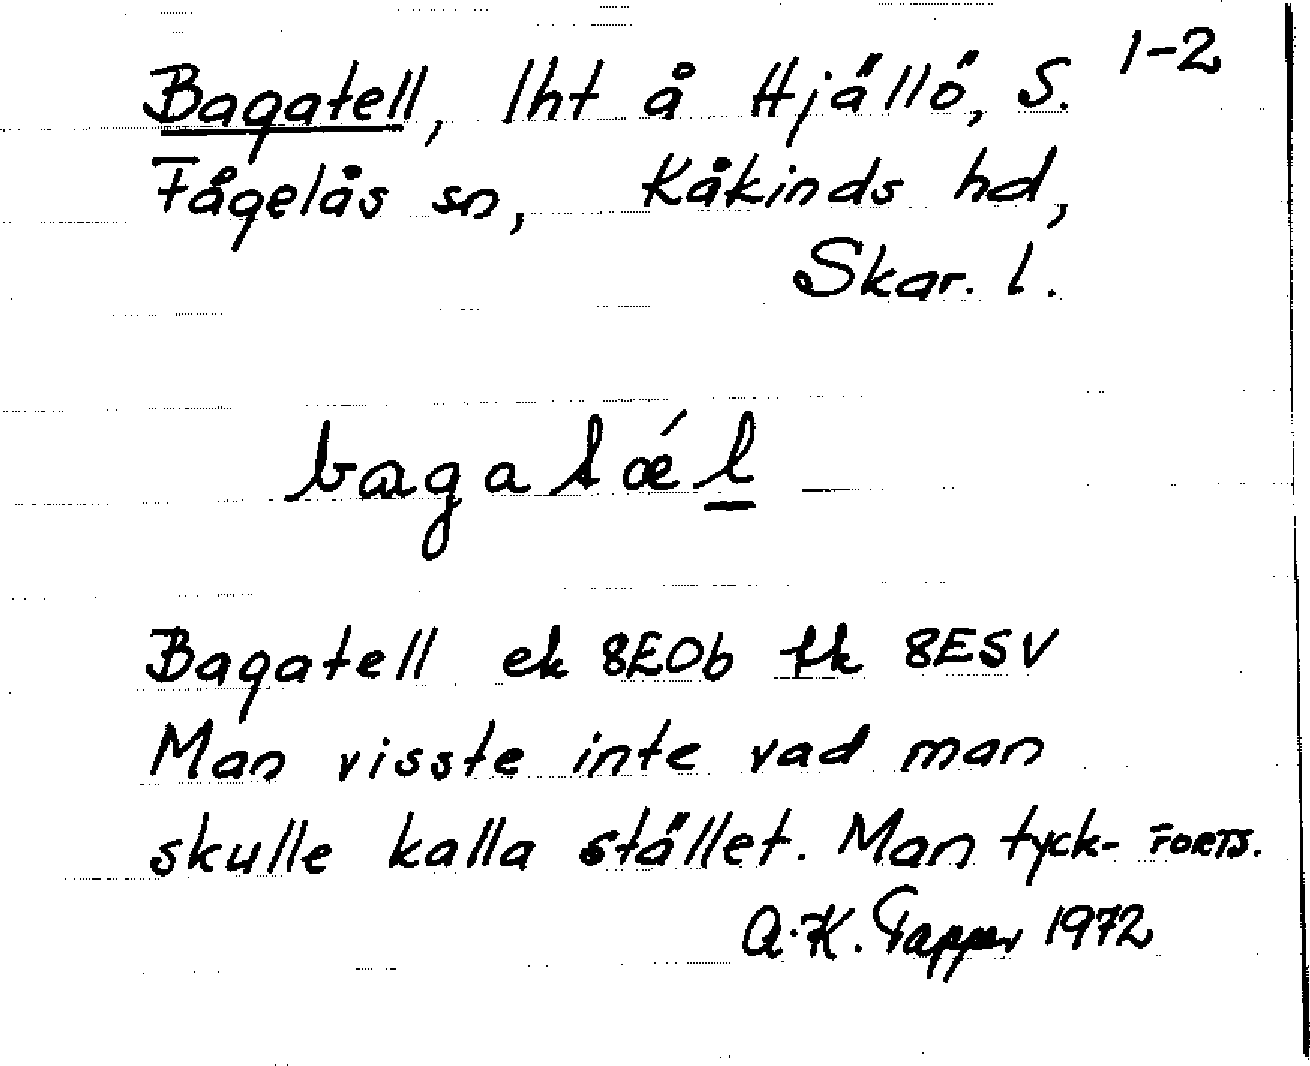 Bagatell, lht å Hjällö, S. 1-2
Fågelås sn, Kåkinds hd,
Skar. l.
bagatǽl
Bagatell ek 8E0b fk 8E5V
Man visste inte vad man
skulle kalla stället. Man tyck- FORTS.
A.K. Tapper 1972